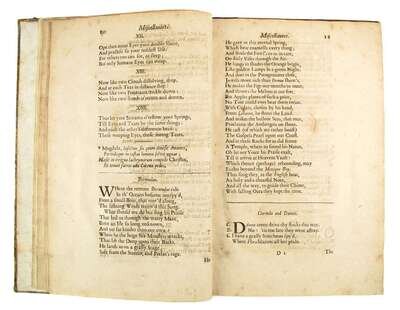 10
Miscellanies.
XII.
Ope then mine Eyes your double sluice,
And practise so your noblest Use;
For others too can see, or sleep;
But only humane Eyes can weep.
XIII.
Now like two Clouds dissolving, drop,
And at each Tear in distance stop:
Now like two Fountains trickle down:
Now like two floods o'return and drown.
XIIII.
Thus let your Streams o'reflow your Springs,
Till Eyes and Tears be the same things:
And each the other's difference bears;
These weeping Eyes, those seeing Tears.
Magdala, lascivos sic quum dimisit Amantes,
Bermudas.
WHere the remote Bermudas ride
In th' Oceans bosome unespy'd,
From a small Boat, that row'd along,
The listning Winds receiv'd this Song.
What should we do but sing his Praise
That led us through the watry Maze,
Unto an Isle so long unknown,
And yet far kinder than our own?
Where he the huge Sea-Monsters wracks,
That lift the Deep upon their Backs.
He lands us on a grassy Stage;
Safe from the Storms, and Prelat's rage.
He
Miscellanies.
11
He gave us this eternal Spring,
Which here enamells every thing;
And sends the Fowl's to us in care,
On daily Visits through the Air.
He hangs in shades the Orange bright,
Like golden Lamps in a green Night.
And does in the Pomgranates close,
Jewels more rich than Ormus show's.
He makes the Figs our mouths to meet;
And throws the Melons at our feet.
But Apples plants of such a price,
No Tree could ever bear them twice.
With Cedars, chosen by his hand,
From Lebanon, he stores the Land.
And makes the hollow Seas, that roar,
Proclaime the Ambergris on shoar.
He cast (of which we rather boast)
The Gospels Pearl upon our Coast.
And in these Rocks for us did frame
A Temple, where to sound his Name.
Oh let our Voice his Praise exalt,
Till it arrive at Heavens Vault:
Which thence (perhaps) rebounding, may
Eccho beyond the Mexique Bay.
Thus sung they, in the English boat,
An holy and a chearful Note,
And all the way, to guide their Chime,
With falling Oars they kept the time.
Clorinda and Damon.
C. Damon come drive thy flocks this way.
D. No: 'tis too late they went astray.
C. I have a grassy Scutcheon spy'd,
Where Flora blazons all her pride.
D 2
The